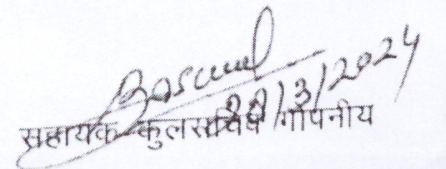 22/3/2024
सहायक कुलसचिव गोपनीय